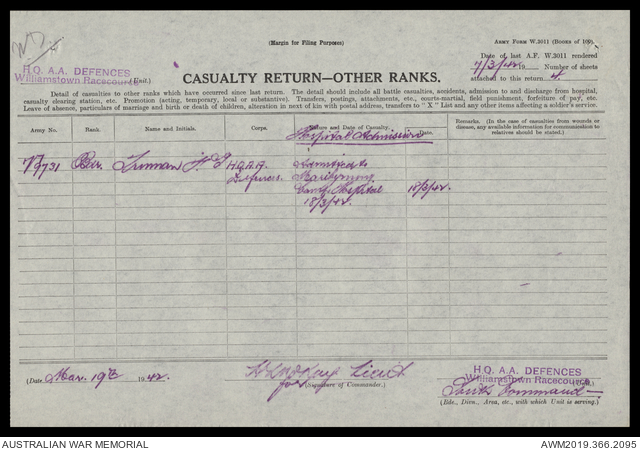 (Margin for Filing Purposes)
ARMY FORM W.3011 (BOOKS OF 100).
Date of last A.F. W.3011 rendered
7/3/42 19 Number of sheets
attached to this return 4.
H.Q. A.A. DEFENCES
Williamstown Racecourse (Unit.)
CASUALTY RETURN—OTHER RANKS.
Detail of casualties to other ranks which have occurred since last return. The detail should include all battle casualties, accidents, admission to and discharge from hospital,
casualty clearing station, etc. Promotion (acting, temporary, local or substantive). Transfers, postings, attachments, etc., courts-martial, field punishment, forfeiture of pay, etc.
Leave of absence, particulars of marriage and birth or death of children, alteration in next of kin with postal address, transfers to "X" List and any other items affecting a soldier's service.
Army No. Rank. Name and Initials. Corps. Nature and Date of Casualty. Date. Remarks. (In the case of casualties from wounds or
disease, any available information for communication to
relatives should be stated.)
Hospital Admission
731 H.Q.A.A. Admitted to
Defences. Maribyrnong
Camp Hospital 18/3/42
18/3/42.
(Date Mar. 19th 1942.
Lieut
for (Signature of Commander.)
H.Q. A.A. DEFENCES
Williamstown Racecourse (Unit.)
South Command
(Bde., Divn., Area, etc., with which Unit is serving.)
AUSTRALIAN WAR MEMORIAL
AWM2019.366.2095